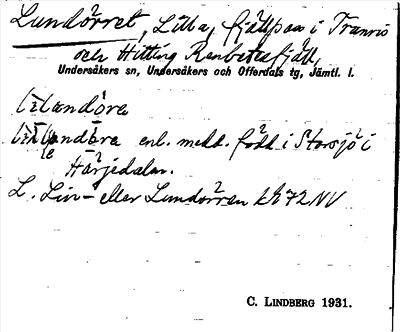 Lundörret, Lilla, fjällpass i Tranris
och Hitting Renbetesfjäll,
Undersåkers sn, Undersåkers och Offerdals tg, Jämtl. l.
enl. medd. född i Storsjö i
Härjedalen.
L. Liv- eller Lundörren NV
C. LINDBERG 1931.